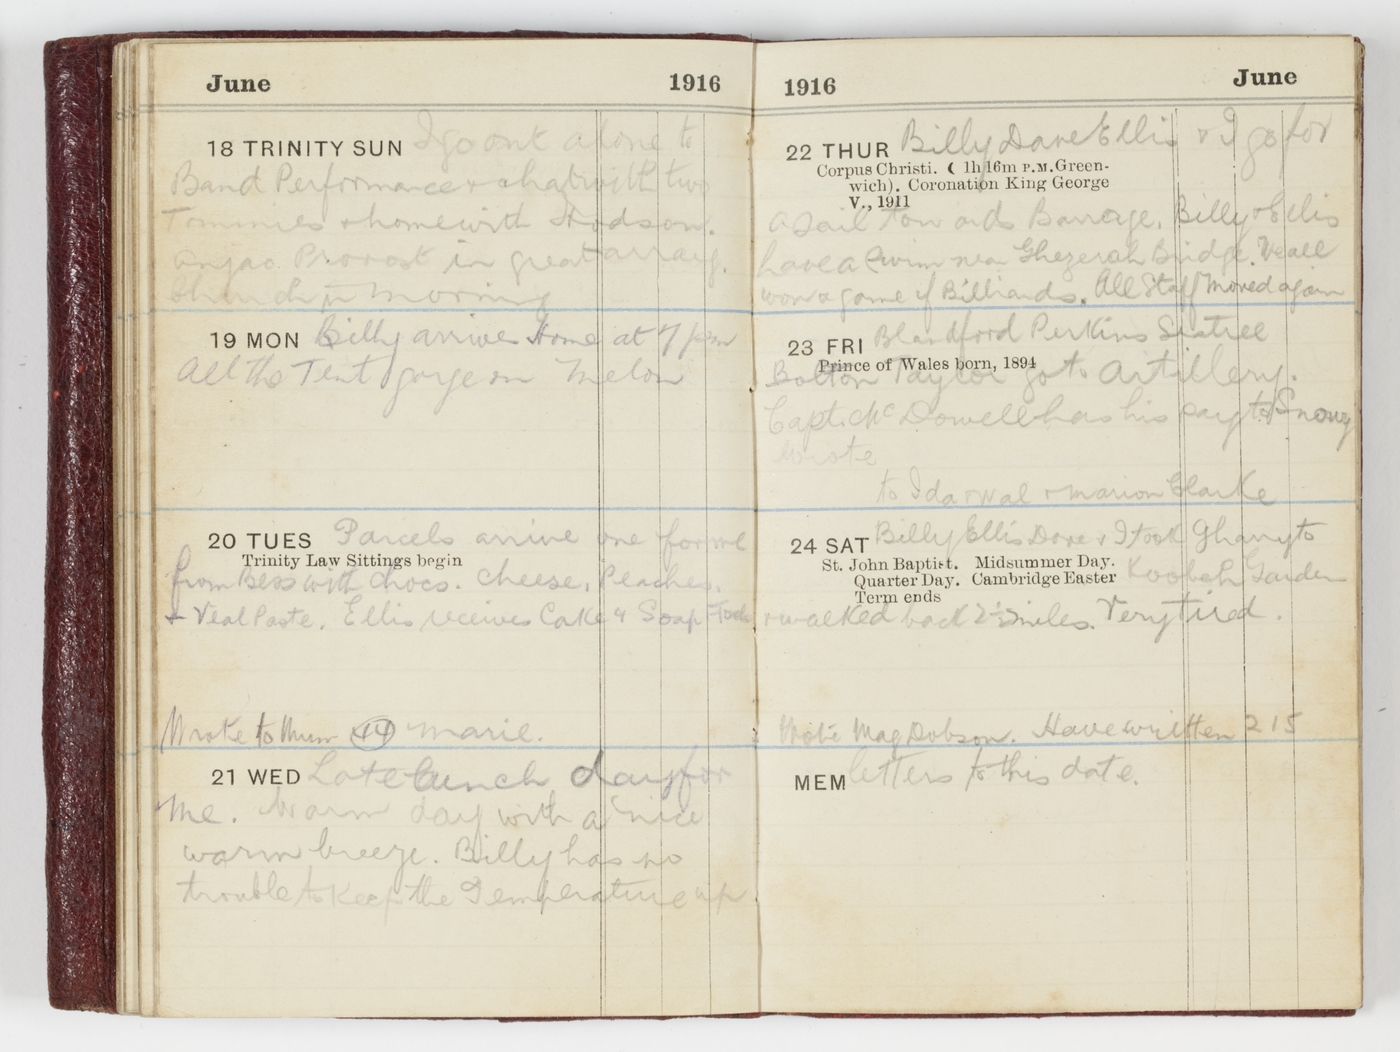 June 1916
18 TRINITY SUN I go out alone to
Band Performance & chat with two
Tommies & home with Hodson.
Anzac Provost in great array.
Church in morning
19 MON Billy arrives Home at 7 pm
All the Tent gorge on Melon
20 TUES Parcels arrive one for me
Trinity Law Sittings begin
from Bess with Chocs. Cheese, Peaches,
& Veal Paste. Ellis receives Cake & Soap
Wrote to Mum 44 Marie.
21 WED Late lunch day for
me. Warm day with a nice
warm breeze. Billy has no
trouble to keep the Temperature up
1916 June
22 THUR Billy Dave Ellis & I go for
Corpus Christi. ☾ 1h 16m P.M. Green-
wich). Coronation King George
V., 1911
a sail towards Barrage. Billy & Ellis
have a swim near Ghezerah Bridge. We all
won a game of Billiards. All Staff moved again
23 FRI Blandford Perkins
Prince of Wales born, 1894
Bolton Taylor go to Artillery.
Capt. McDowell has his say to Snowy
Wrote
to Ida & Wal & Marion Clarke
24 SAT Billy Ellis Dave & I took Gharry to
St. John Baptist. Midsummer Day.
Quarter Day. Cambridge Easter
Term ends
Koobeh Garden
& walked back 2½ miles. Very tired.
Wrote Mag Dobson. Have written 215
MEM letters to this date.